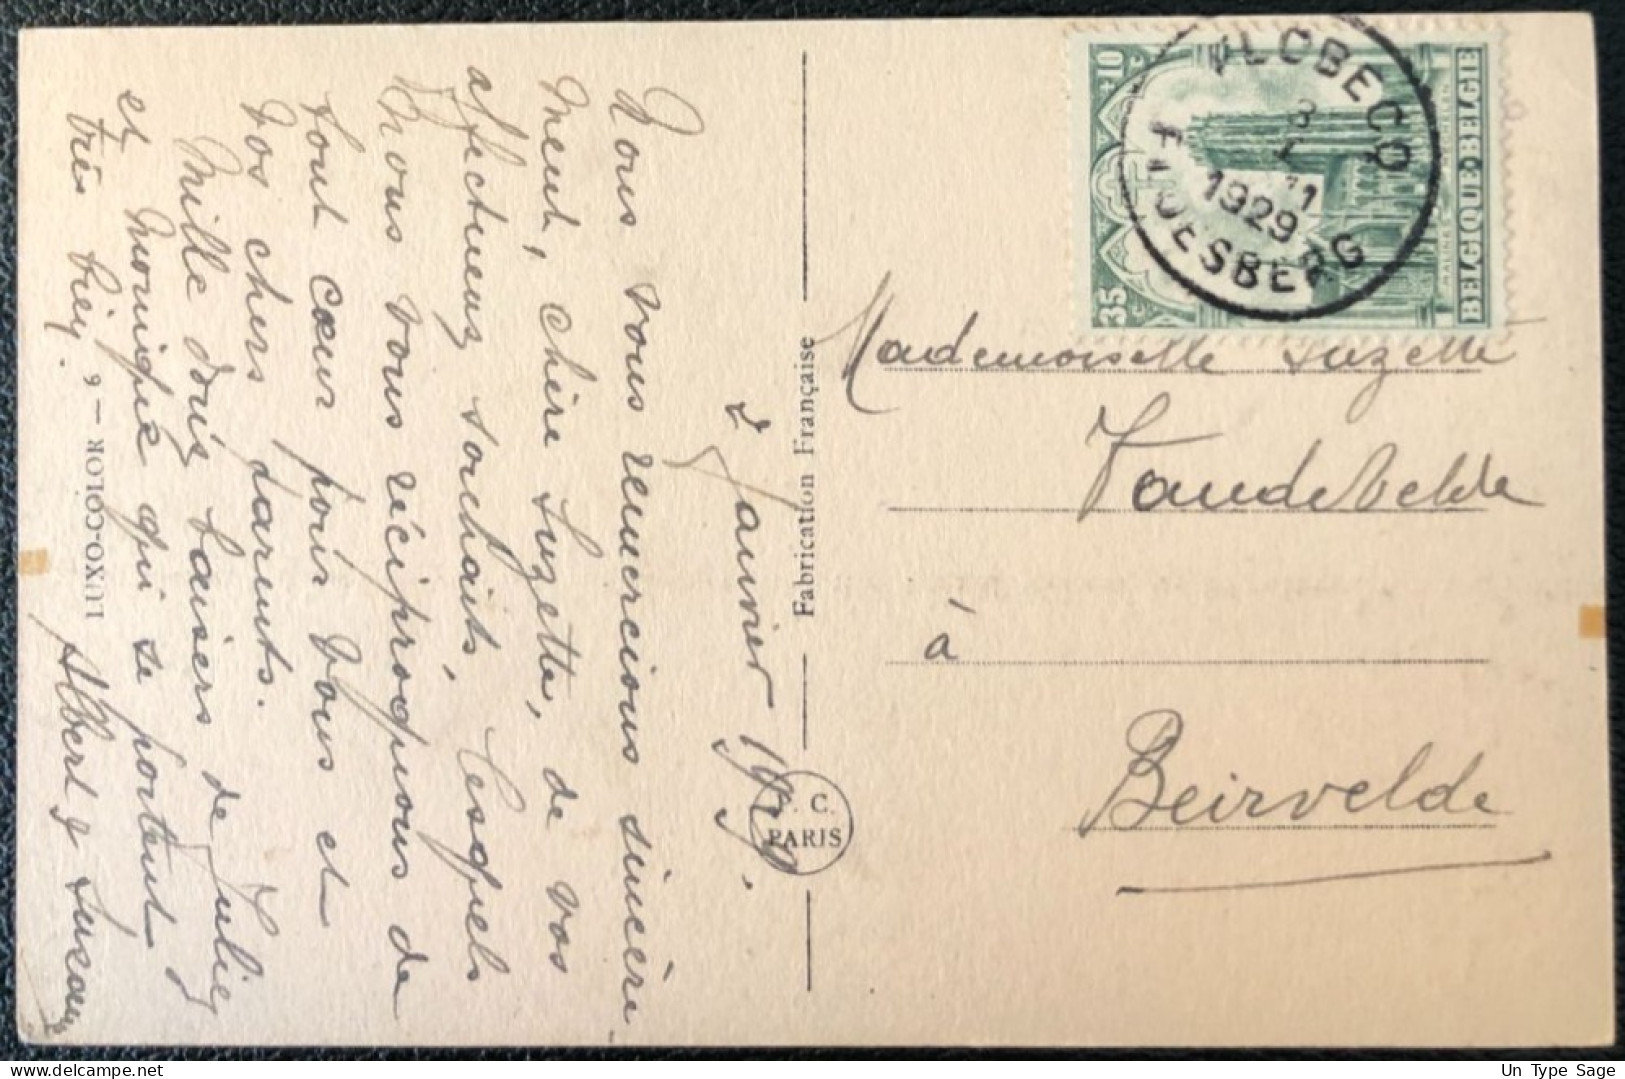 2 Janvier 1929.
Nous vous remercions sincère
ment, chère Suzette, de vos
affectueux souhaits, lesquels
nous vous réciproquons de
tout cœur pour vous et
vos chers parents.
Mille doux baisers de Juliey
et Monique qui se portent
très biey.
Albert & Suzanne
LUXO-COLOR — 9
Fabrication Française
C.
PARIS
35
+10
BELGIQUE-BELGIE
FLOBECQ
3
1
11
1929
VLOESBERG
Mademoiselle Suzette
Vandevelde
à
Beirvelde
Un Type Sage